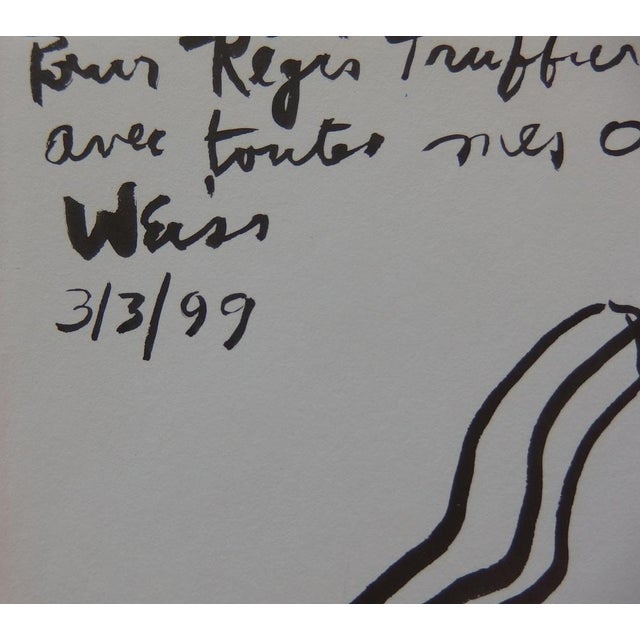 Pour Régis Truffier
avec toutes mes
Weiss
3/3/99